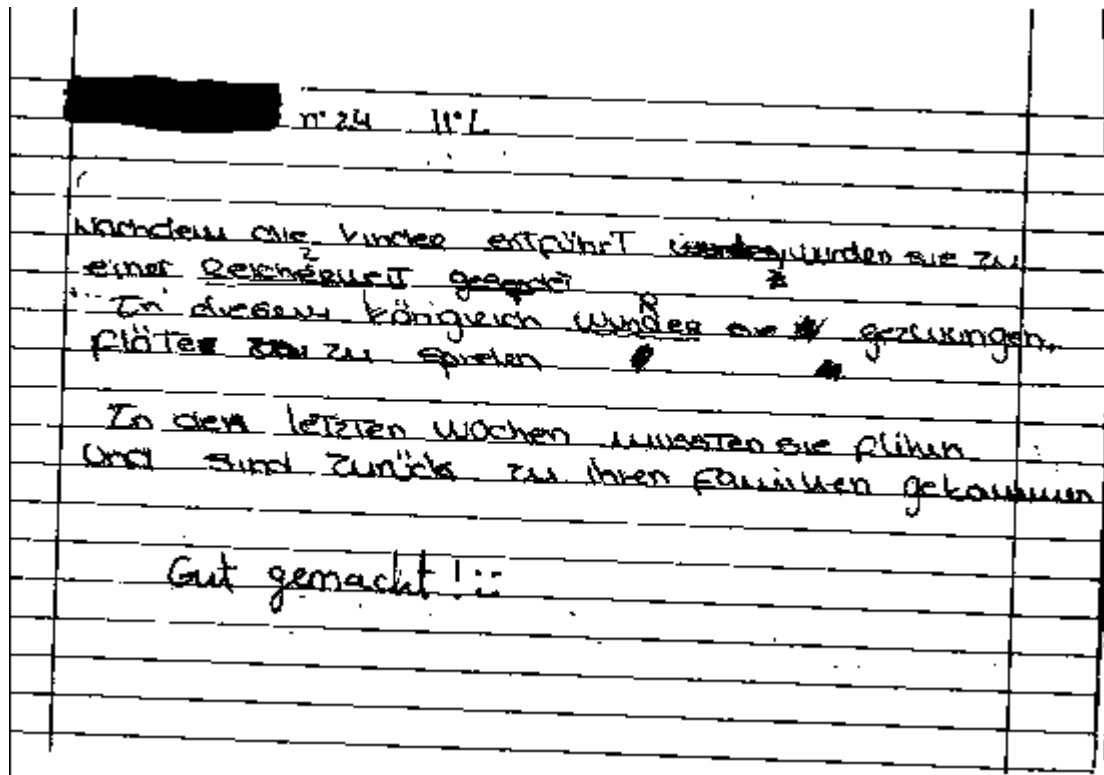 n° 24 11°L
Nachdem die Kinder entführt wurden, wurden sie zu
einer
In diesem Königreich wurden sie gezwungen,
Flöte zu spielen
In den letzten Wochen mussten sie flihen
und sind zurück zu ihren Familien gekommen
Gut gemacht!